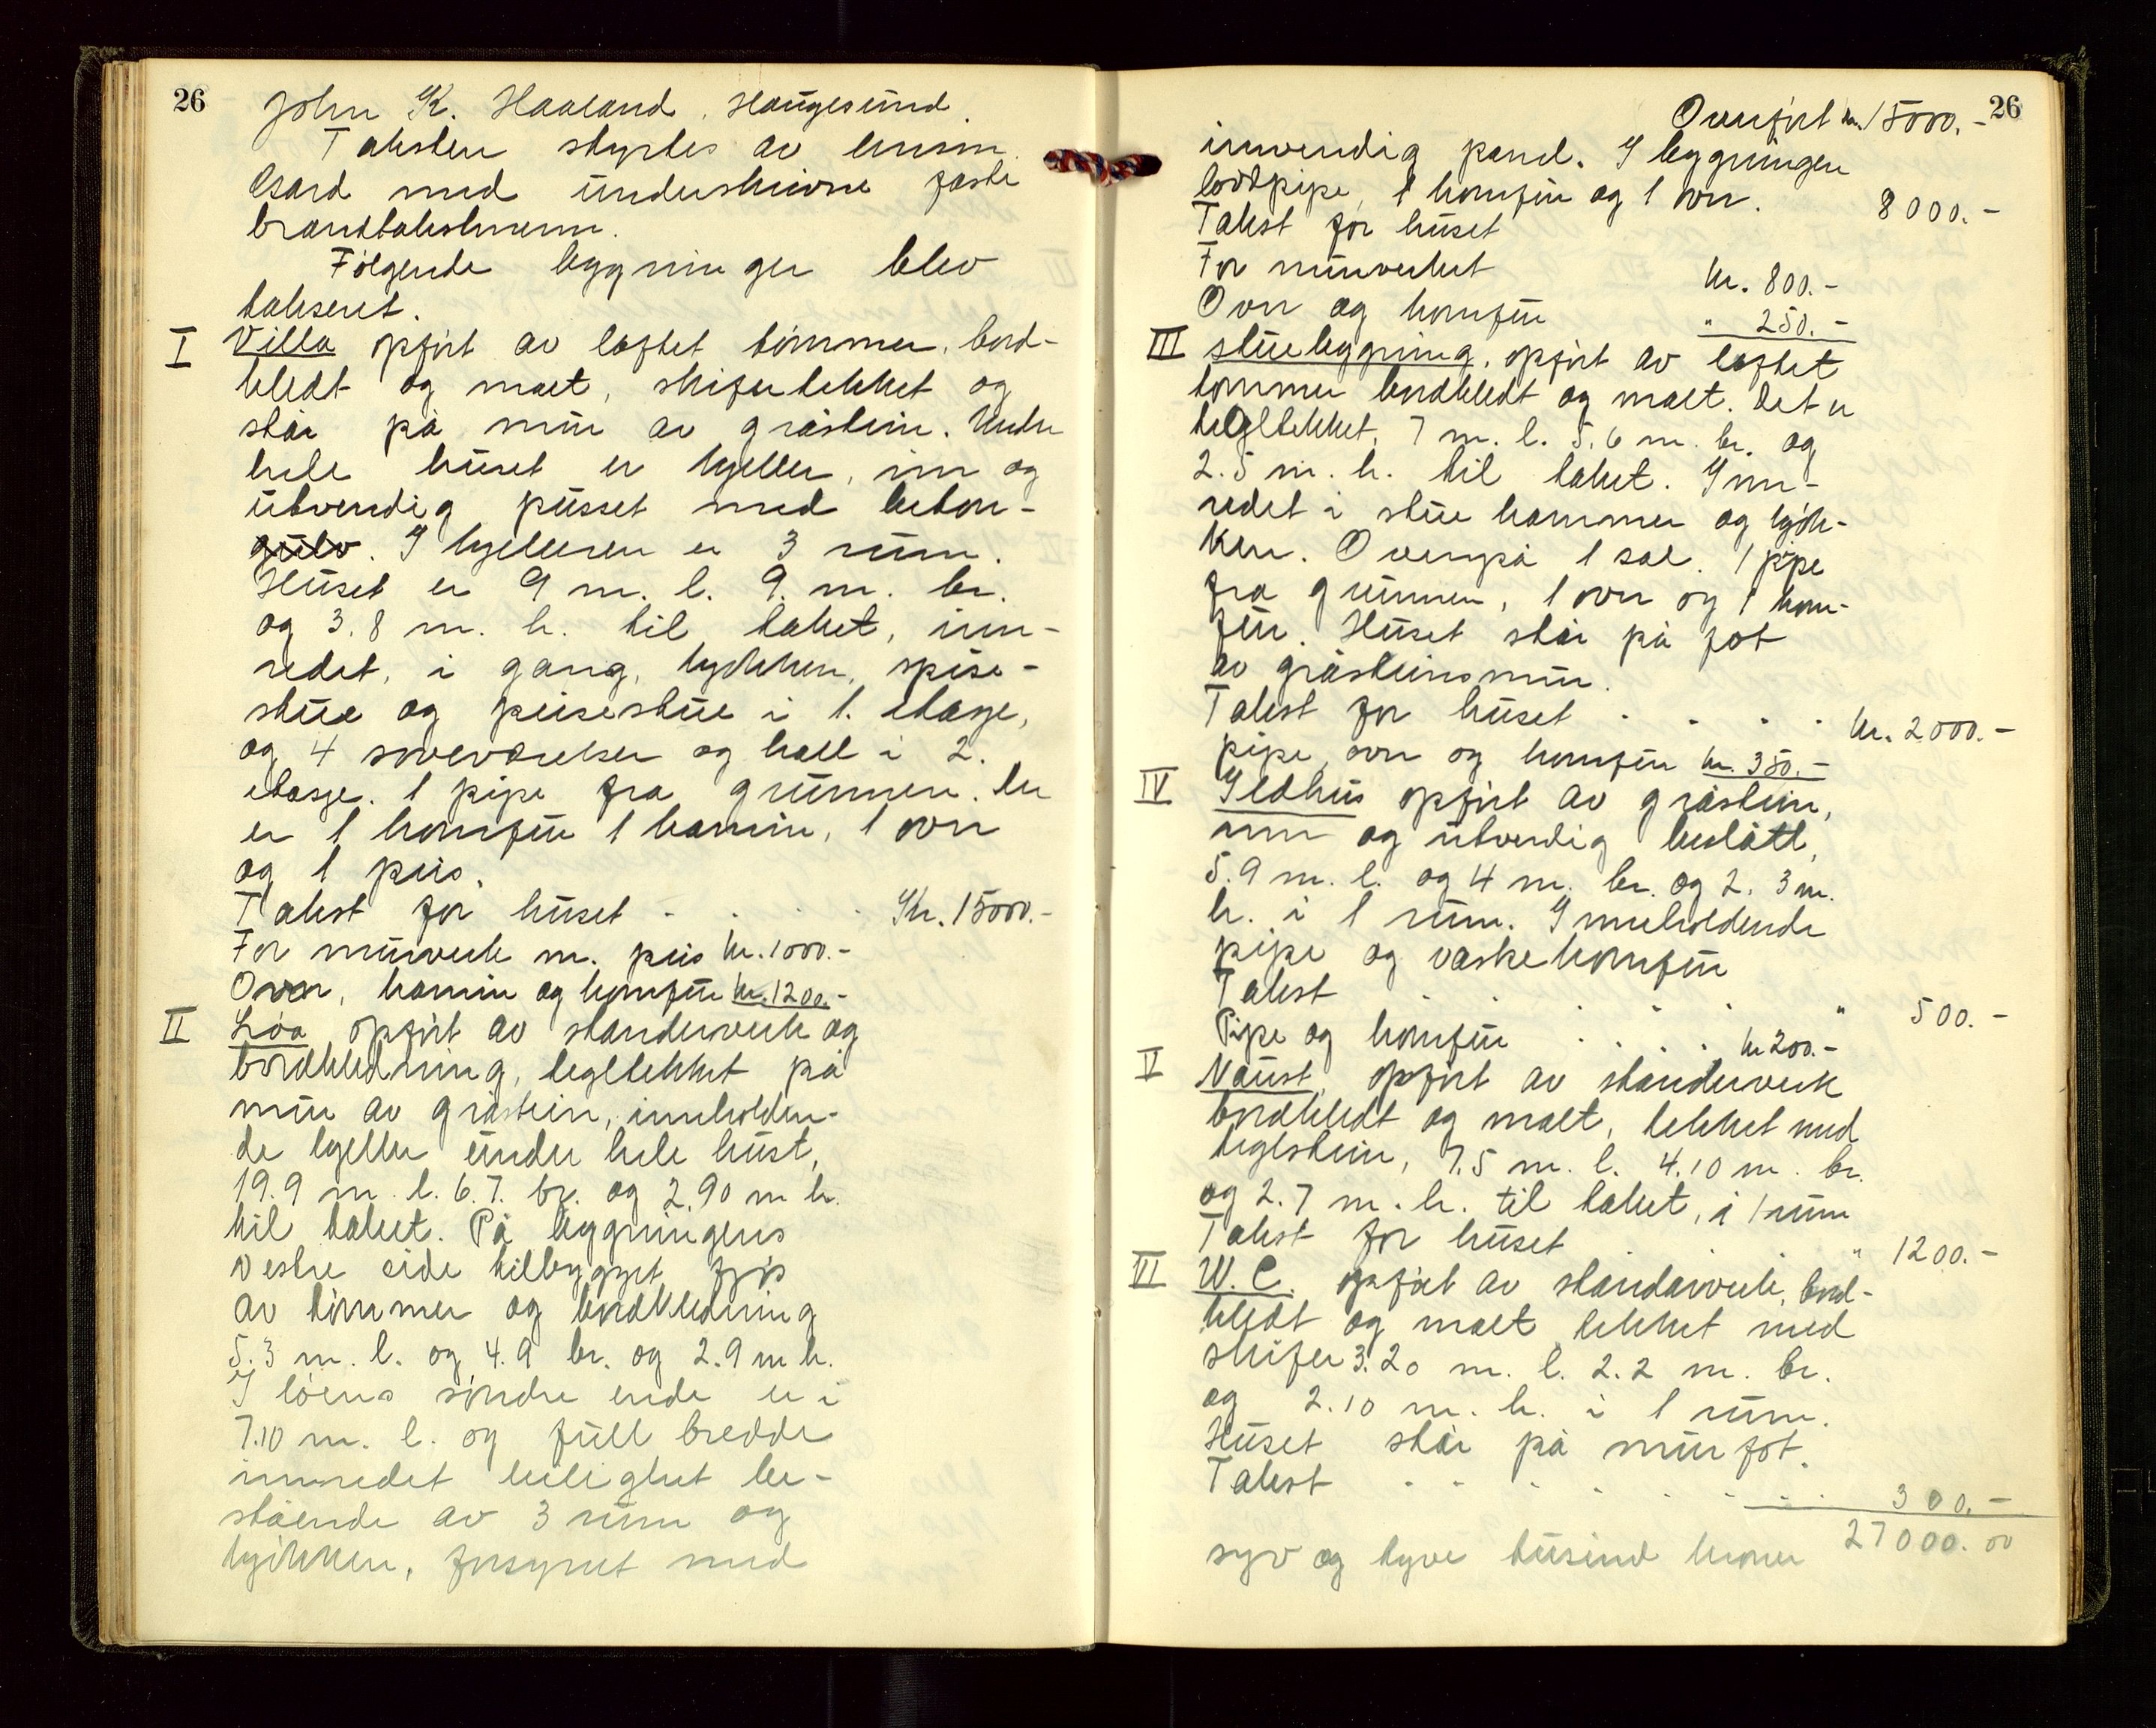 26
John K. Haaland, Haugesund.
Taksten styrtes av lensm.
Gard med underskrevne faste
brandtakstmenn.
Følgende bygninger blev
takseret.
I Villa opført av laftet tømmer, bord-
kledt og malt, skifertekket og
står på mur av gråstein. Under
hele huset er kjeller, inn og
utvendig pusset med beton-
gulv. I kjelleren er 3 rum.
Huset er 9 m. l. 9. m. br.
og 3.8 m. h. til taket, inn-
redet, i gang, kjøkken, spise-
stue og peisestue i 1. etasje,
og 4 soveværelser og hall i 2.
etasje. 1 pipe fra grunnen. Der
er 1 komfur 1 kamin, 1 ovn
og 1 peis.
Takst for huset - . . . Kr. 15000.-
For murverk m. peis kr. 1000.-
Ovn, kamin og komfur kr. 1200.-
II Løa opført av standerverk og
bordkledning, tegltekket på
mur av gråstein, inneholden-
de kjeller under hele hust,
19.9 m. l. 6.7. br. og 2.90 m h.
til taket. På bygningens
vestre side tilbygget fjøs
av tømmer og bordkledning
5.3 m. l. og 4.9 br. og 2.9 m h.
I løens søndre ende er i
7.10 m. l. og full bredde
innredet leilighet be-
stående av 3 rum og
kjøkken, forsynet med
26
Overført kr. 15000.-
innvendig panel. I bygningen
loddpipe, 1 komfur og 1 ovn.
Takst for huset 8000.-
For murverket kr. 800.-
Ovn og komfur " 250.-
III Stuebygning, opført av laftet
tømmer bordkledt og malt. Det er
tegltekket, 7 m. l. 5.6 m. br. og
2.5 m. h. til taket. Inn-
redet i stue kammer og kjøk-
ken. Ovenpå 1 sal. 1 pipe
fra grunnen, 1 ovn og 1 kom-
fur. Huset står på fot
av gråsteinsmur.
Takst for huset . . . . kr. 2000.-
pipe, ovn og komfur kr. 350.-
IV Ildhus opført av gråstein,
inn og utvendig beslått,
5.9 m. l. og 4 m. br. og 2.3 m.
h. i 1 rum. Inneholdende
pipe og vaskekomfur
Takst . . . . . " 500.-
Pipe og komfur . . . . kr 200.-
V Naust, opført av standerverk
bordkledt og malt, tekket med
teglstein, 7.5 m. l. 4.10 m. br.
og 2.7 m. h. til taket, i 1 rum
Takst for huset . . . " 1200.-
VI W.C. opført av standarverk, bord-
kledt og malt tekket med
skifer 3.20 m. l. 2.2 m. br.
og 2.10 m. h. i 1 rum.
Huset står på murfot.
Takst . . . . . . . 300.-
syv og tyve tusind kroner 27000.00